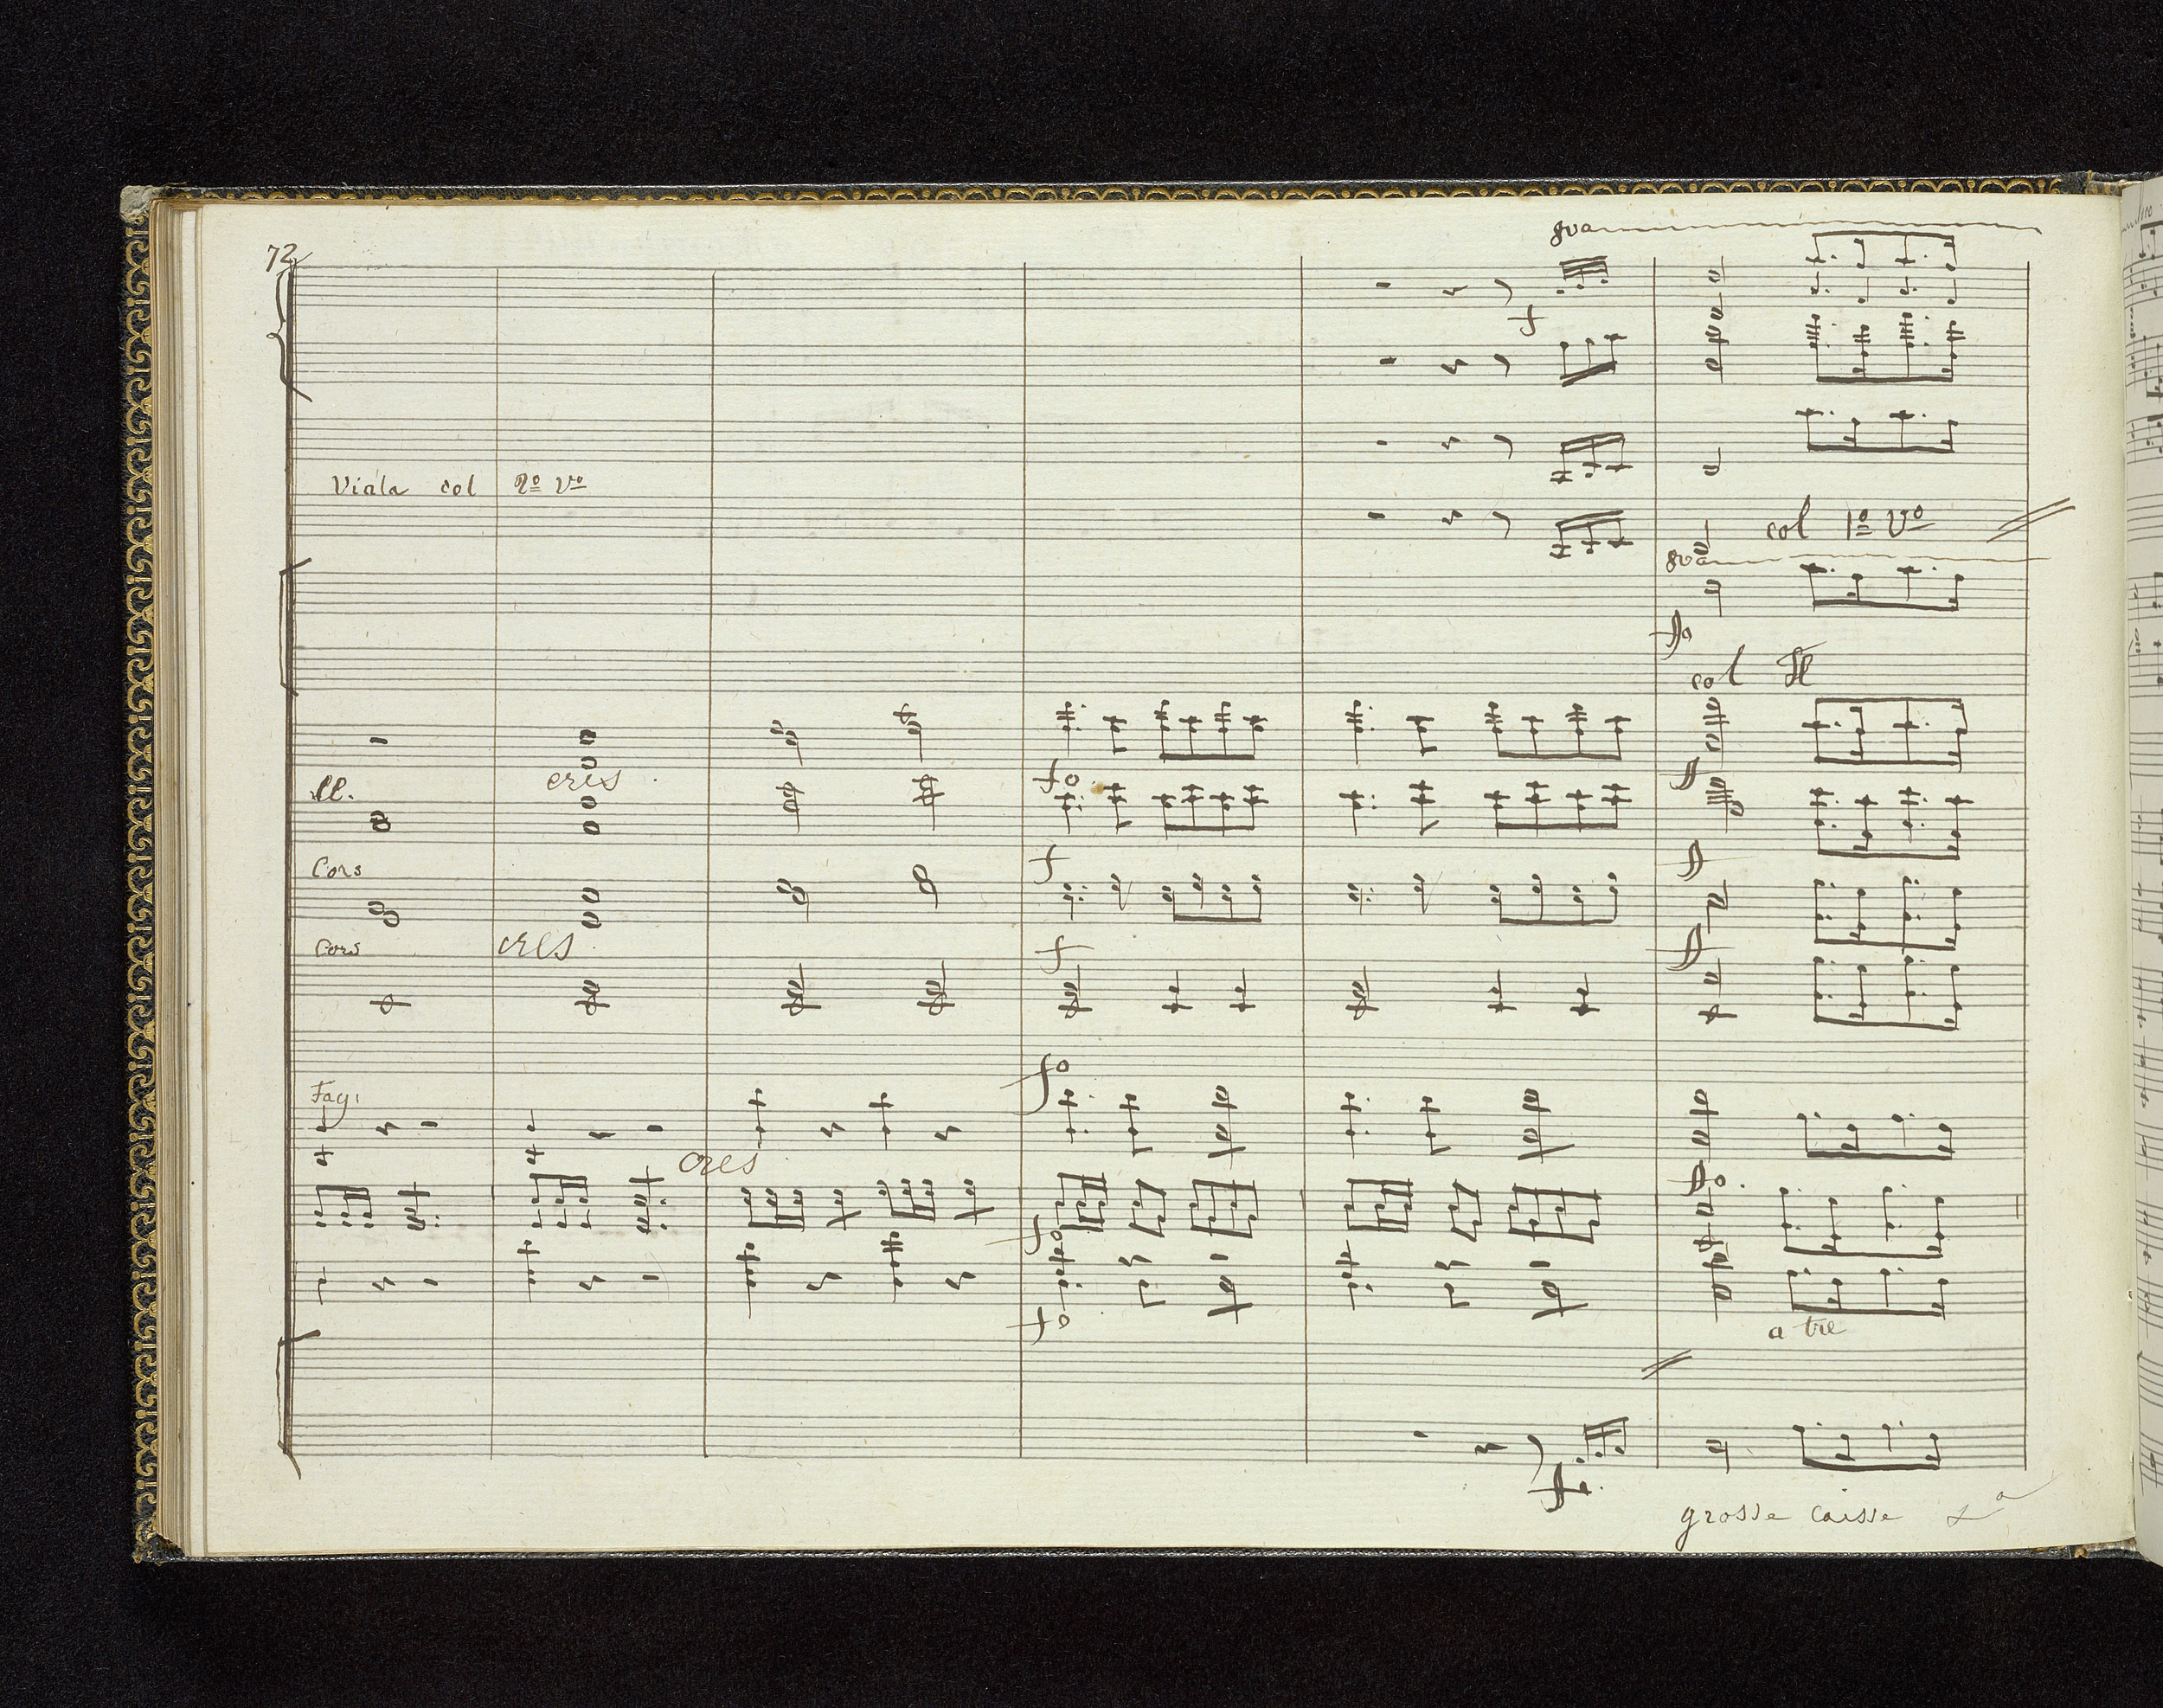 72
8va
f
Viala col 2º Vº
col 1º Vº
8va
ffo
col Fl
cres
fo
ll.
ff
Cors
f
ff
Cors
cres
f
ff
fo
Fag.
cres
ffo.
fo
fo
a tre
ff.
grosse caisse